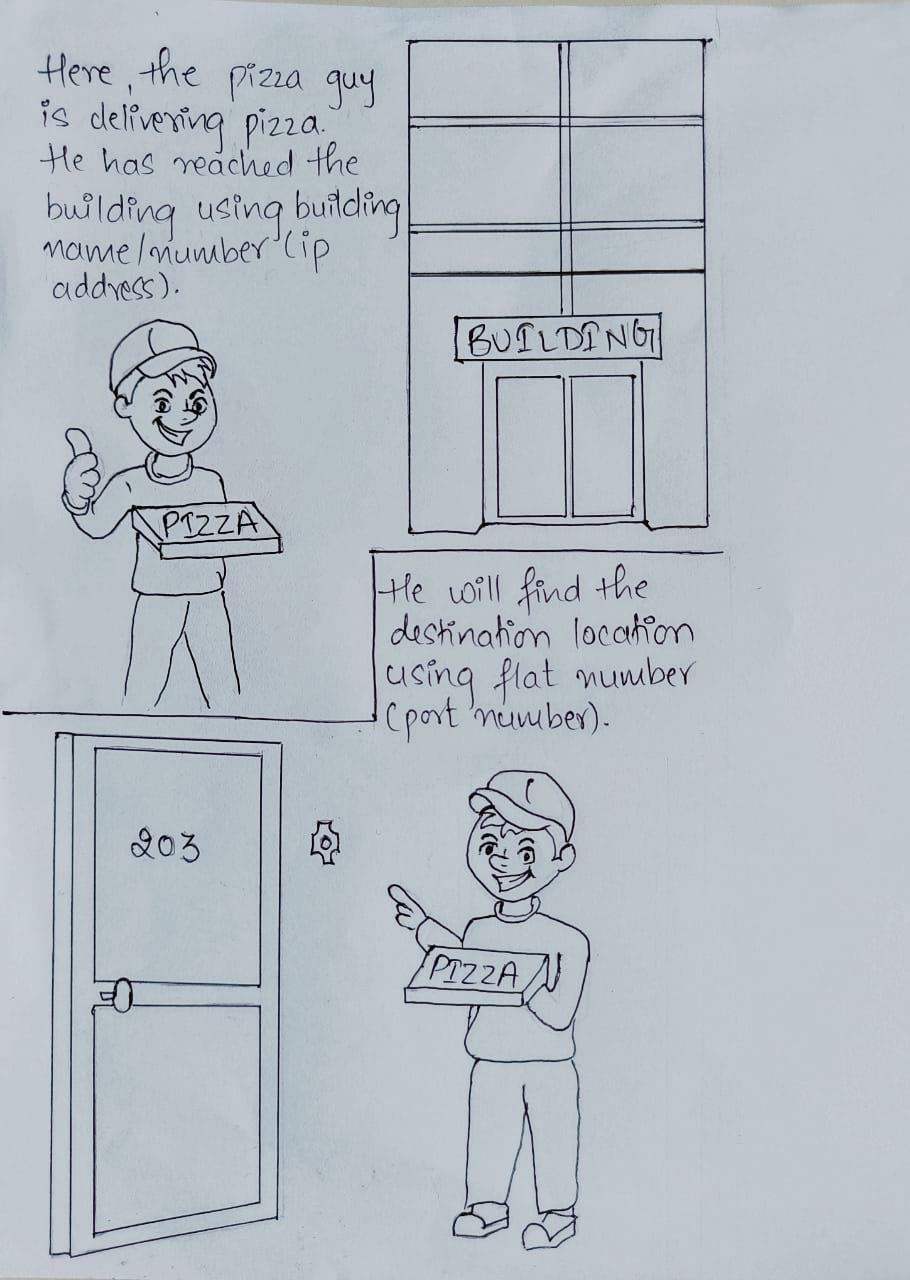 Here, the pizza guy
is delivering pizza.
He has reached the
building using building
name/number (ip
address).
BUILDING
PIZZA
He will find the
destination location
using flat number
(port number).
203
PIZZA